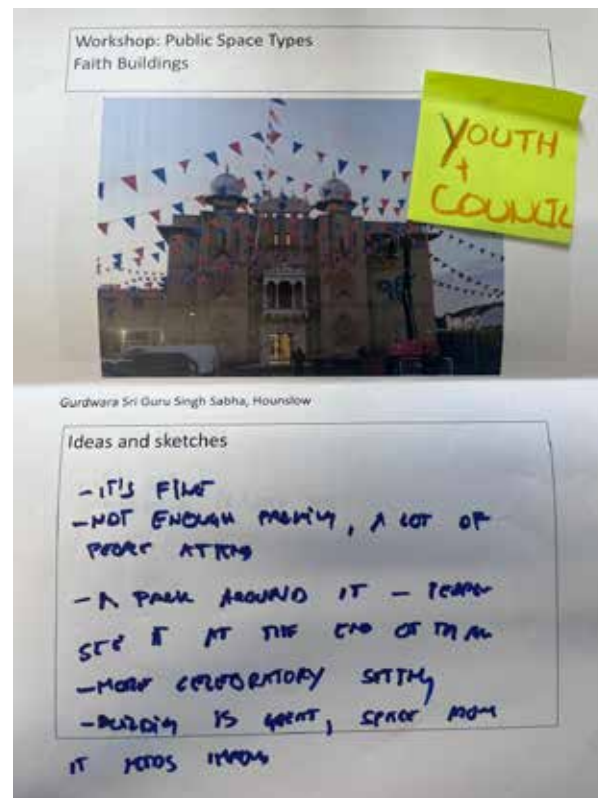 Workshop: Public Space Types
Faith Buildings
YOUTH
+
COUNCIL
Gurdwara Sri Guru Singh Sabha, Hounslow
Ideas and sketches
- IT'S FINE
- NOT ENOUGH PARKING, A LOT OF
PEOPLE ATTEND
- A PARK AROUND IT -
AT THE END OF
- MORE CELEBRATORY SETTING
- BUILDING IS GREAT, SPACE
IT NEEDS